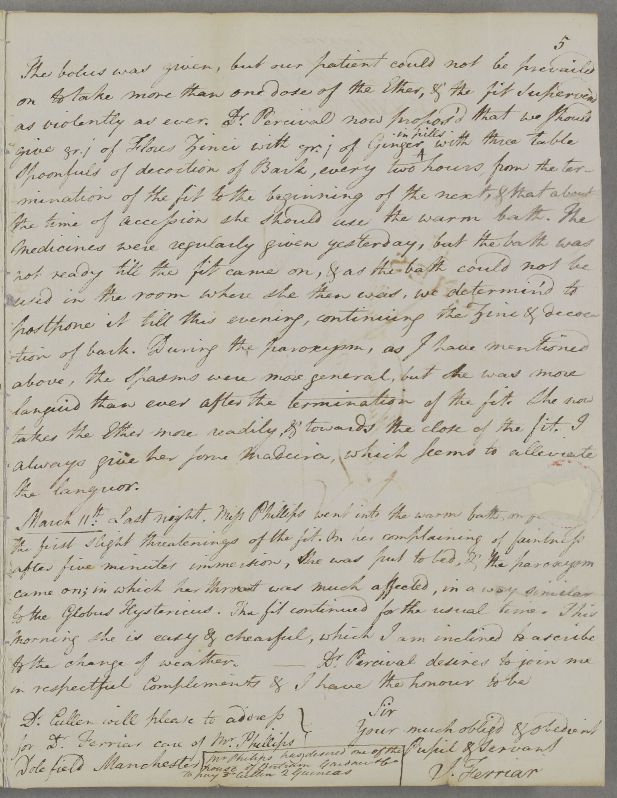 5
The bolus was given, but our patient could not be prevailed
on to take more than one dose of the Ether, & the fit supervened
as violently as ever. Dr. Percival now propos'd that we should
give gr.j of Flores Zinci with gr.j of Ginger in pills, with three table
spoonfuls of decoction of Bark, every two hours from the ter-
mination of the fit to the beginning of the next, & that about
the time of accession she should use the warm bath. The
medicines were regularly given yesterday, but the bath was
not ready till the fit came on, & as the bath could not be
used in the room where she then was, we determin'd to
postpone it till this evening, continuing the Zinc & decoc
tion of bark. During the paroxysm, as I have mentioned
above, the spasms were more general, but she was more
languid than ever after the termination of the fit. She now
takes the Ether more readily, & towards the close of the fit. I
always give her some Madeira, which seems to alleviate
the languor.
March 11th. Last night. Miss Phillips went into the warm bath, on
the first slight threatenings of the fit. On her complaining of faintness
after five minutes immersion, she was put to bed, & the paroxysm
came on; in which her throat was much affected, in a way similar
to the Globus Hystericus. The fit continued for the usual time. This
morning she is easy & chearful, which I am inclined to ascribe
to the change of weather. — Dr. Percival desires to join me
in respectful compliments & I have the honour to be
Sir
Your much oblig'd & obedient
Pupil & Servant
J. Ferriar
Dr. Cullen will please to address
for Dr. Ferriar care of Mr. Phillips
Dolefield Manchester
Mr Philips has desired one of the
house of Bertram Gardner & Co
to pay Dr Cullen 2 Guineas